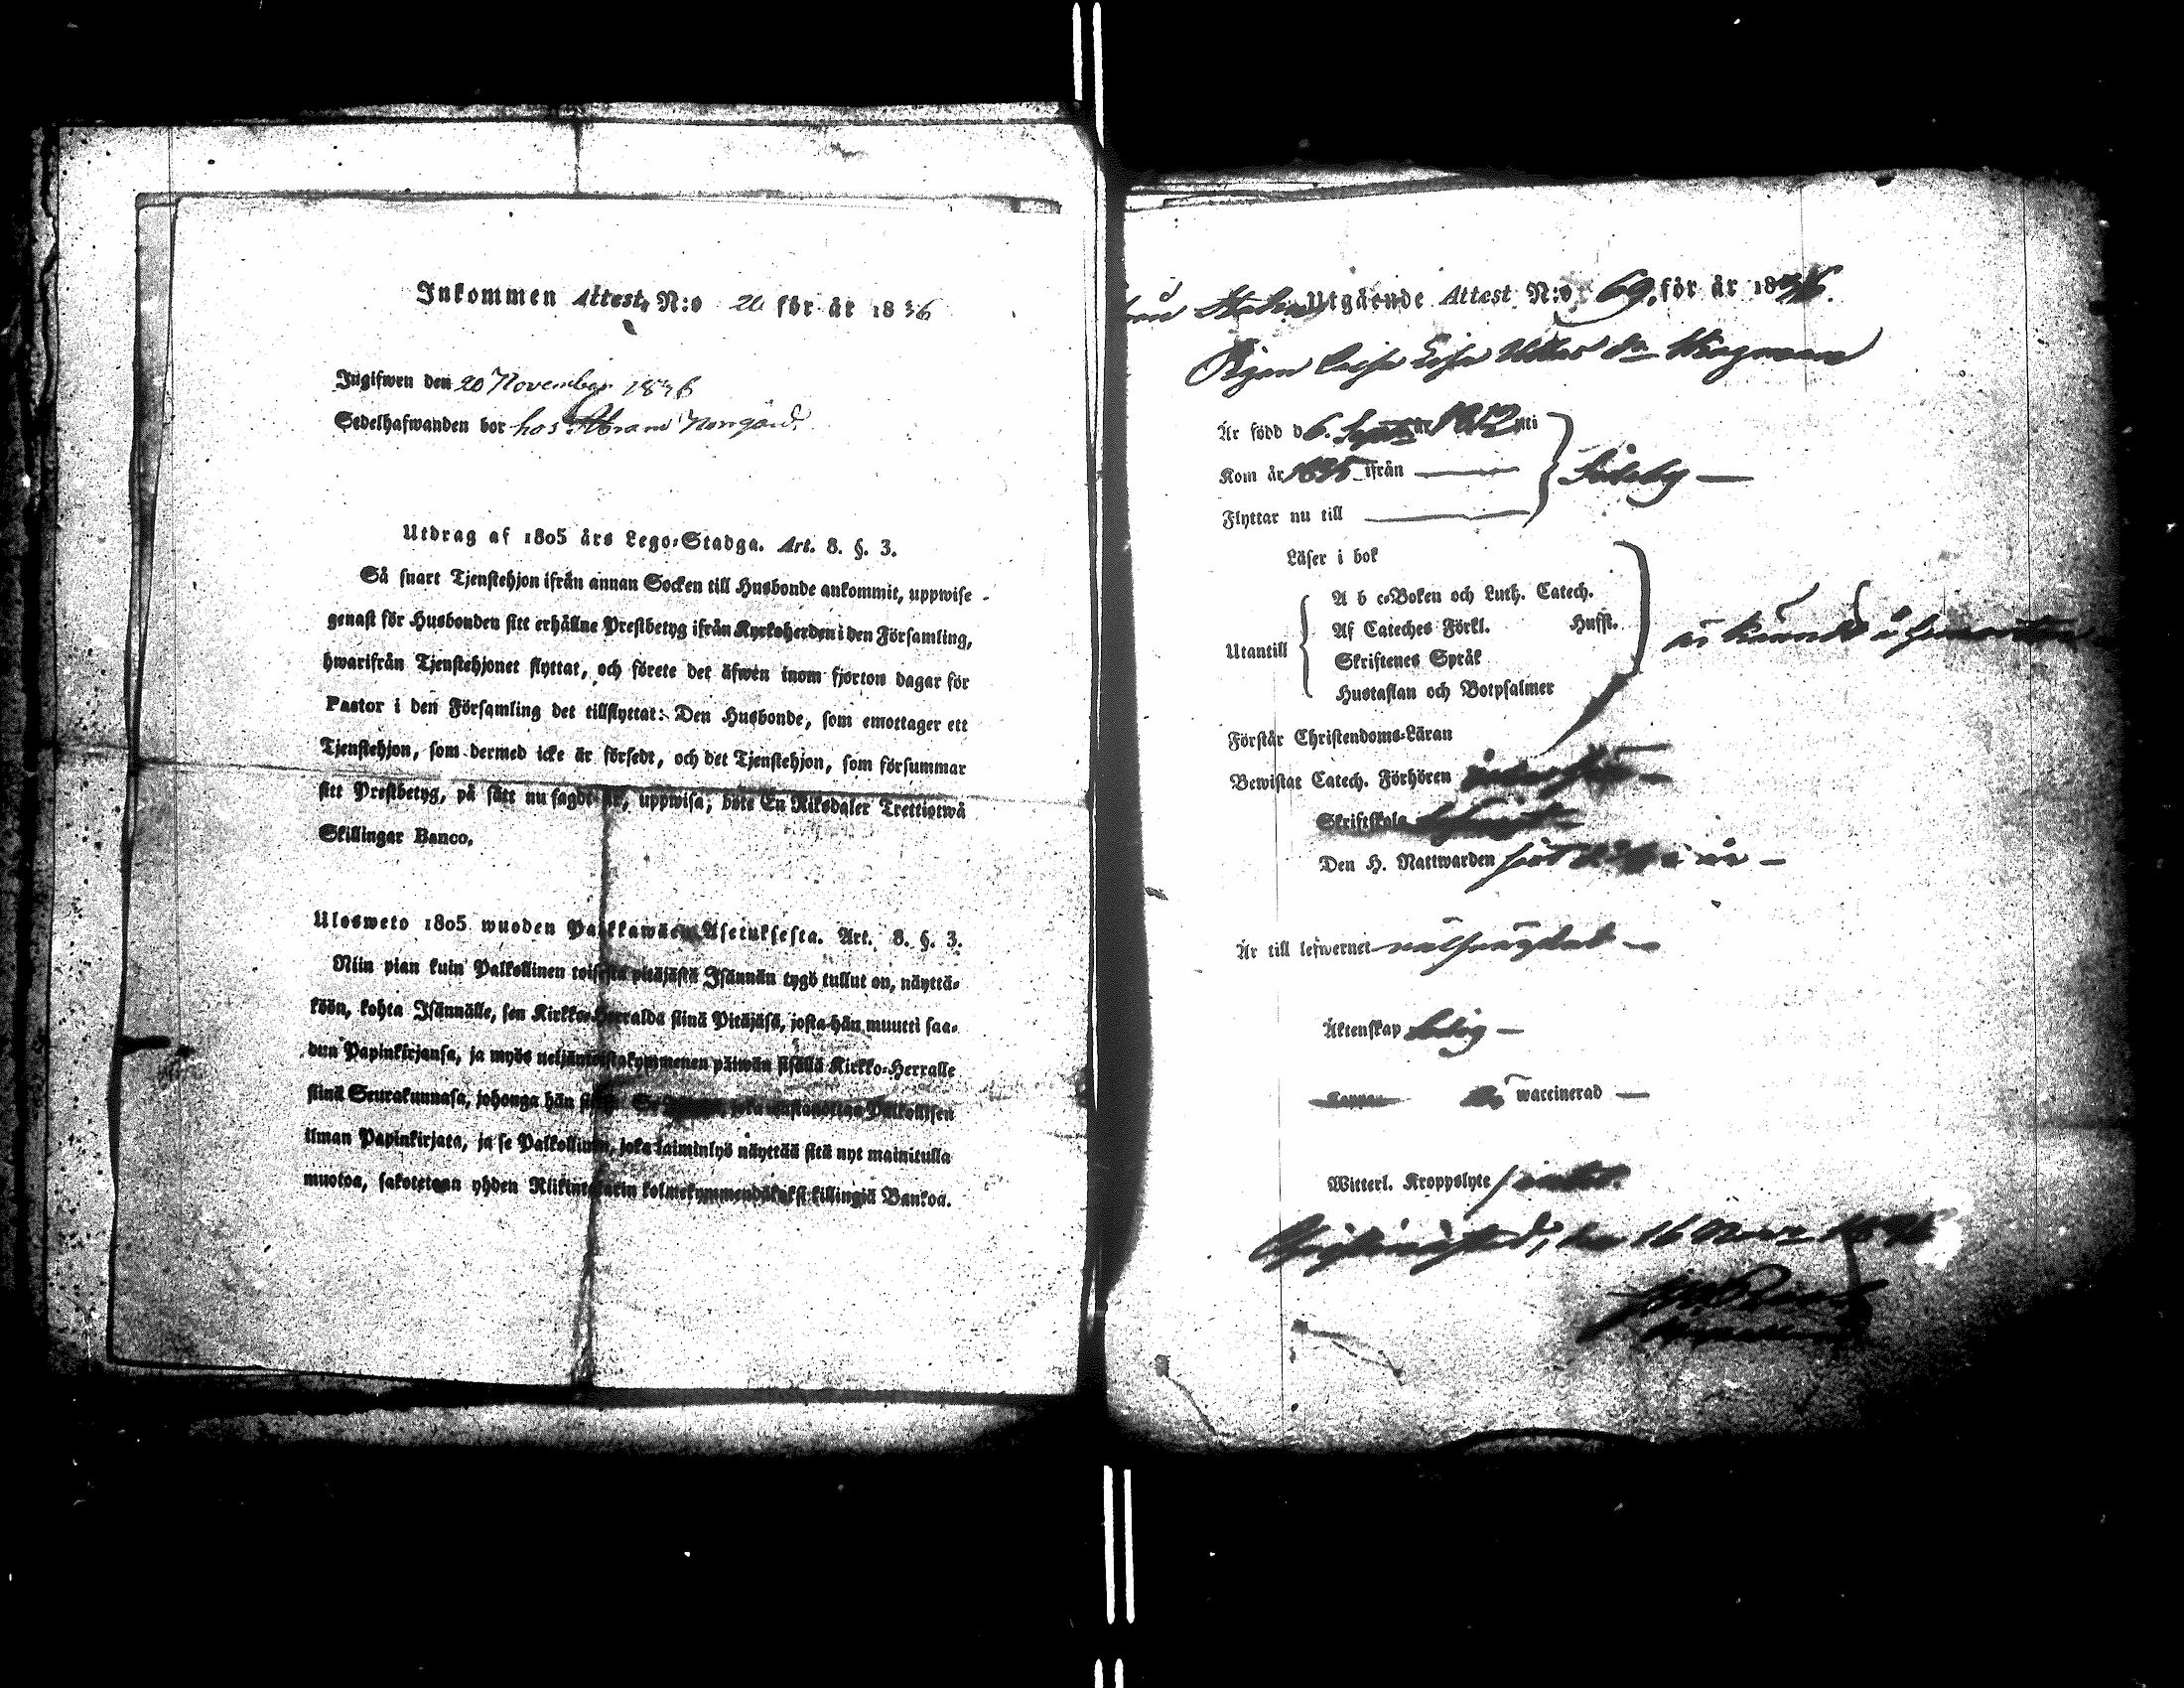 Inkommen Attest, N:o 20 för år 1836
Ingifwen den 20 November 1836
Sedelhafwanden bor hos Abram Norrgård.
Utdrag af 1805 års Lego-Stadga. Art. 8. §. 3.
Så snart Tjenstehjon ifrån annan Socken till Husbonde ankommit, uppwise
genast för Husbonden sitt erhållne Prestbetyg ifrån Kyrkoherden i den Församling,
hwarifrån Tjenstehjonet flyttat, och förete det äfwen inom fjorton dagar för
Pastor i den Församling det tillflyttat: Den Husbonde, som emottager ett
Tjenstehjon, som dermed icke är försedt, och det Tjenstehjon, som försummar
sitt Prestbetyg, på sätt nu sagdt är, uppwisa, böte En Riksdaler Trettiotwå
Skillingar Banco.
Ulosweto 1805 wuoden Palkkawäen Asetuksesta. Art. 8. §. 3.
Niin pian kuin Palkollinen toisesta pitäjästä Isännän tygö tullut on, näyttä-
köön, kohta Isännälle, sen Kirkko-Herralda siinä Pitäjäsä, josta hän muutti saa-
dun Papinkirjansa, ja myös neljäntoistakymmenen päiwän sisällä Kirkko-Herralle
siinä Seurakunnasa, johonga hän Se joka wastanottaa Palkollisen
ilman Papinkirjata, ja se Palkollinen, joka laiminlyö näyttää sitä nyt mainitulla
muotoa, sakotetaan yhden Riikintalarin kolmekymmendäkaksi killingiä Bankoa.
Utgående Attest N:o 69. för år 1836.
Pigan Caisa Lisa dr Wagman
Är född d 6. Sept. år 1812 uti
Kom år 1835 ifrån
Flyttar nu till
Läser i bok
A b c-Boken och Luth. Catech.
Af Cateches Förkl. Hufst.
Utantill
Skriftenes Språk
Hustaflan och Botpsalmer
Förstår Christendoms-Läran
Bewistat Catech. Förhören
Skriftskola
Den H. Nattwarden i år
Är till lefwernet wälfrägdad
Äktenskap ledig
waccinerad
Witterl. Kroppslyte
den 16 Nov. 1836